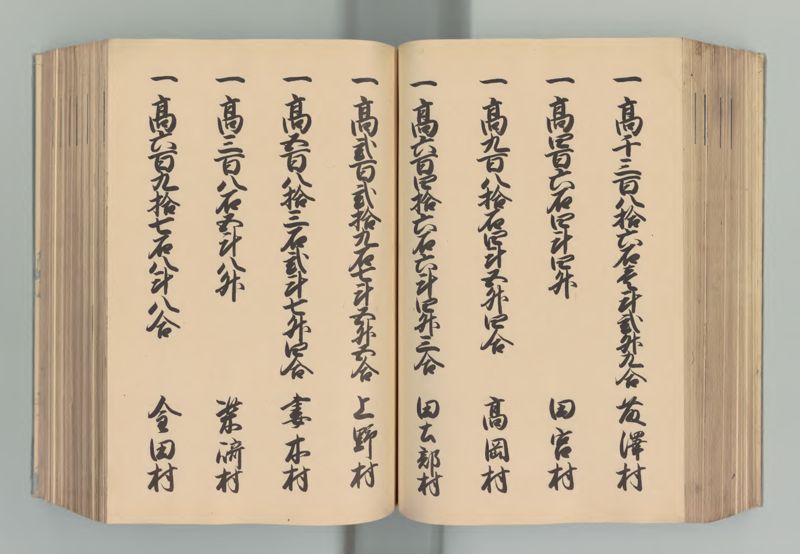 一 高千三百八拾六石壱斗弐升九合 澤村
一 高四百六石四斗四升 田宮村
一 高九百八拾石四斗五升四合 高岡村
一 高六百四拾六石六斗四升三合 田土部村
一 高弐百弐拾九石七斗五升六合 上野村
一 高五百八拾三石弐斗七升四合 妻木村
一 高三百八石五斗八升 栗崎村
一 高六百九拾七石八斗八合 金田村